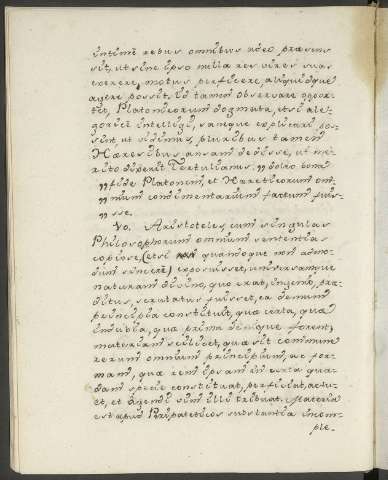 intimè rebus omnibus adeo præsens
sit, ut sine ipso nulla res vires suas
exerere, motus perficere, aliquidque
agere possit. Id tamen observare oppor-
tet, Platonicorum dogmata, etsi ale-
goricè intelligi, sanque explicari pos-
sint ut vidimus, pluribus tamen
Hæresibus ansam dedisse, ut me-
rito dixerit Tertulianus: „ doleo bona
„ fide Platonem, et Hæreticorum om-
„ nium condimentarium factum fuis-
„ se.
40. Aristoteles cum singulas
Philosophorum omnium sententias
copiose, (etsi quandoque non admo-
dum sincere) exposuisset, universamque
naturam divino, quo erat, ingenio, præ-
ditus, scrutatus fuisset, ea demum
principia constituit, quæ certa, quæ
indubia, quæ prima denique forent,
materiam scilicet, quæ sit commune
rerum omnium principium, ac for-
mam, quæ rem ipsam in certa qua-
dam specie constituat, perficiat, actu-
et, et agendi vim illi tribuat. Materia
est apud Peripateticos substantia incom-
ple-